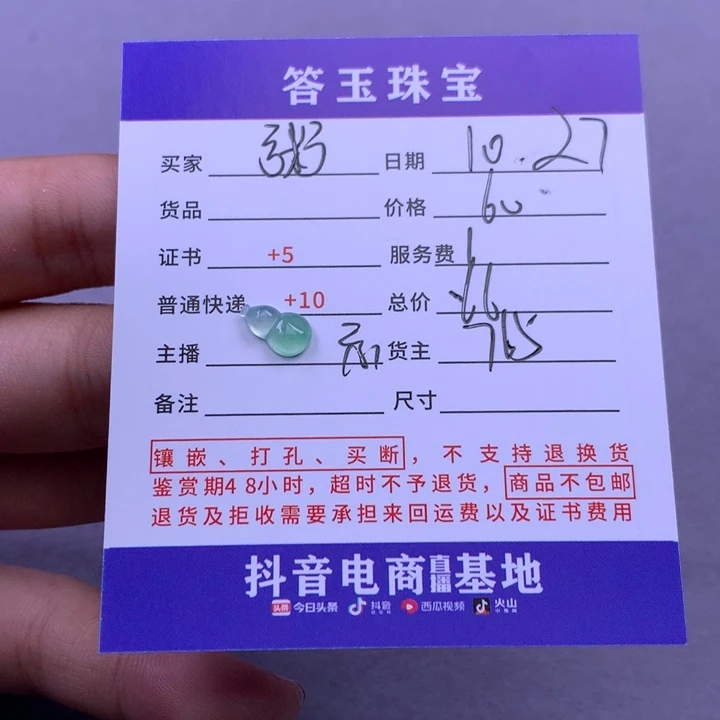 答玉珠宝
买家 粥 日期 10.27
货品 价格 60
证书 +5 服务费
普通快递 +10 总价 66
主播 货主 765
备注 尺寸
镶嵌、打孔、买断，不支持退换货
鉴赏期48小时，超时不予退货，商品不包邮
退货及拒收需要承担来回运费以及证书费用
抖音电商直播基地
头条 今日头条 抖音 西瓜视频 火山